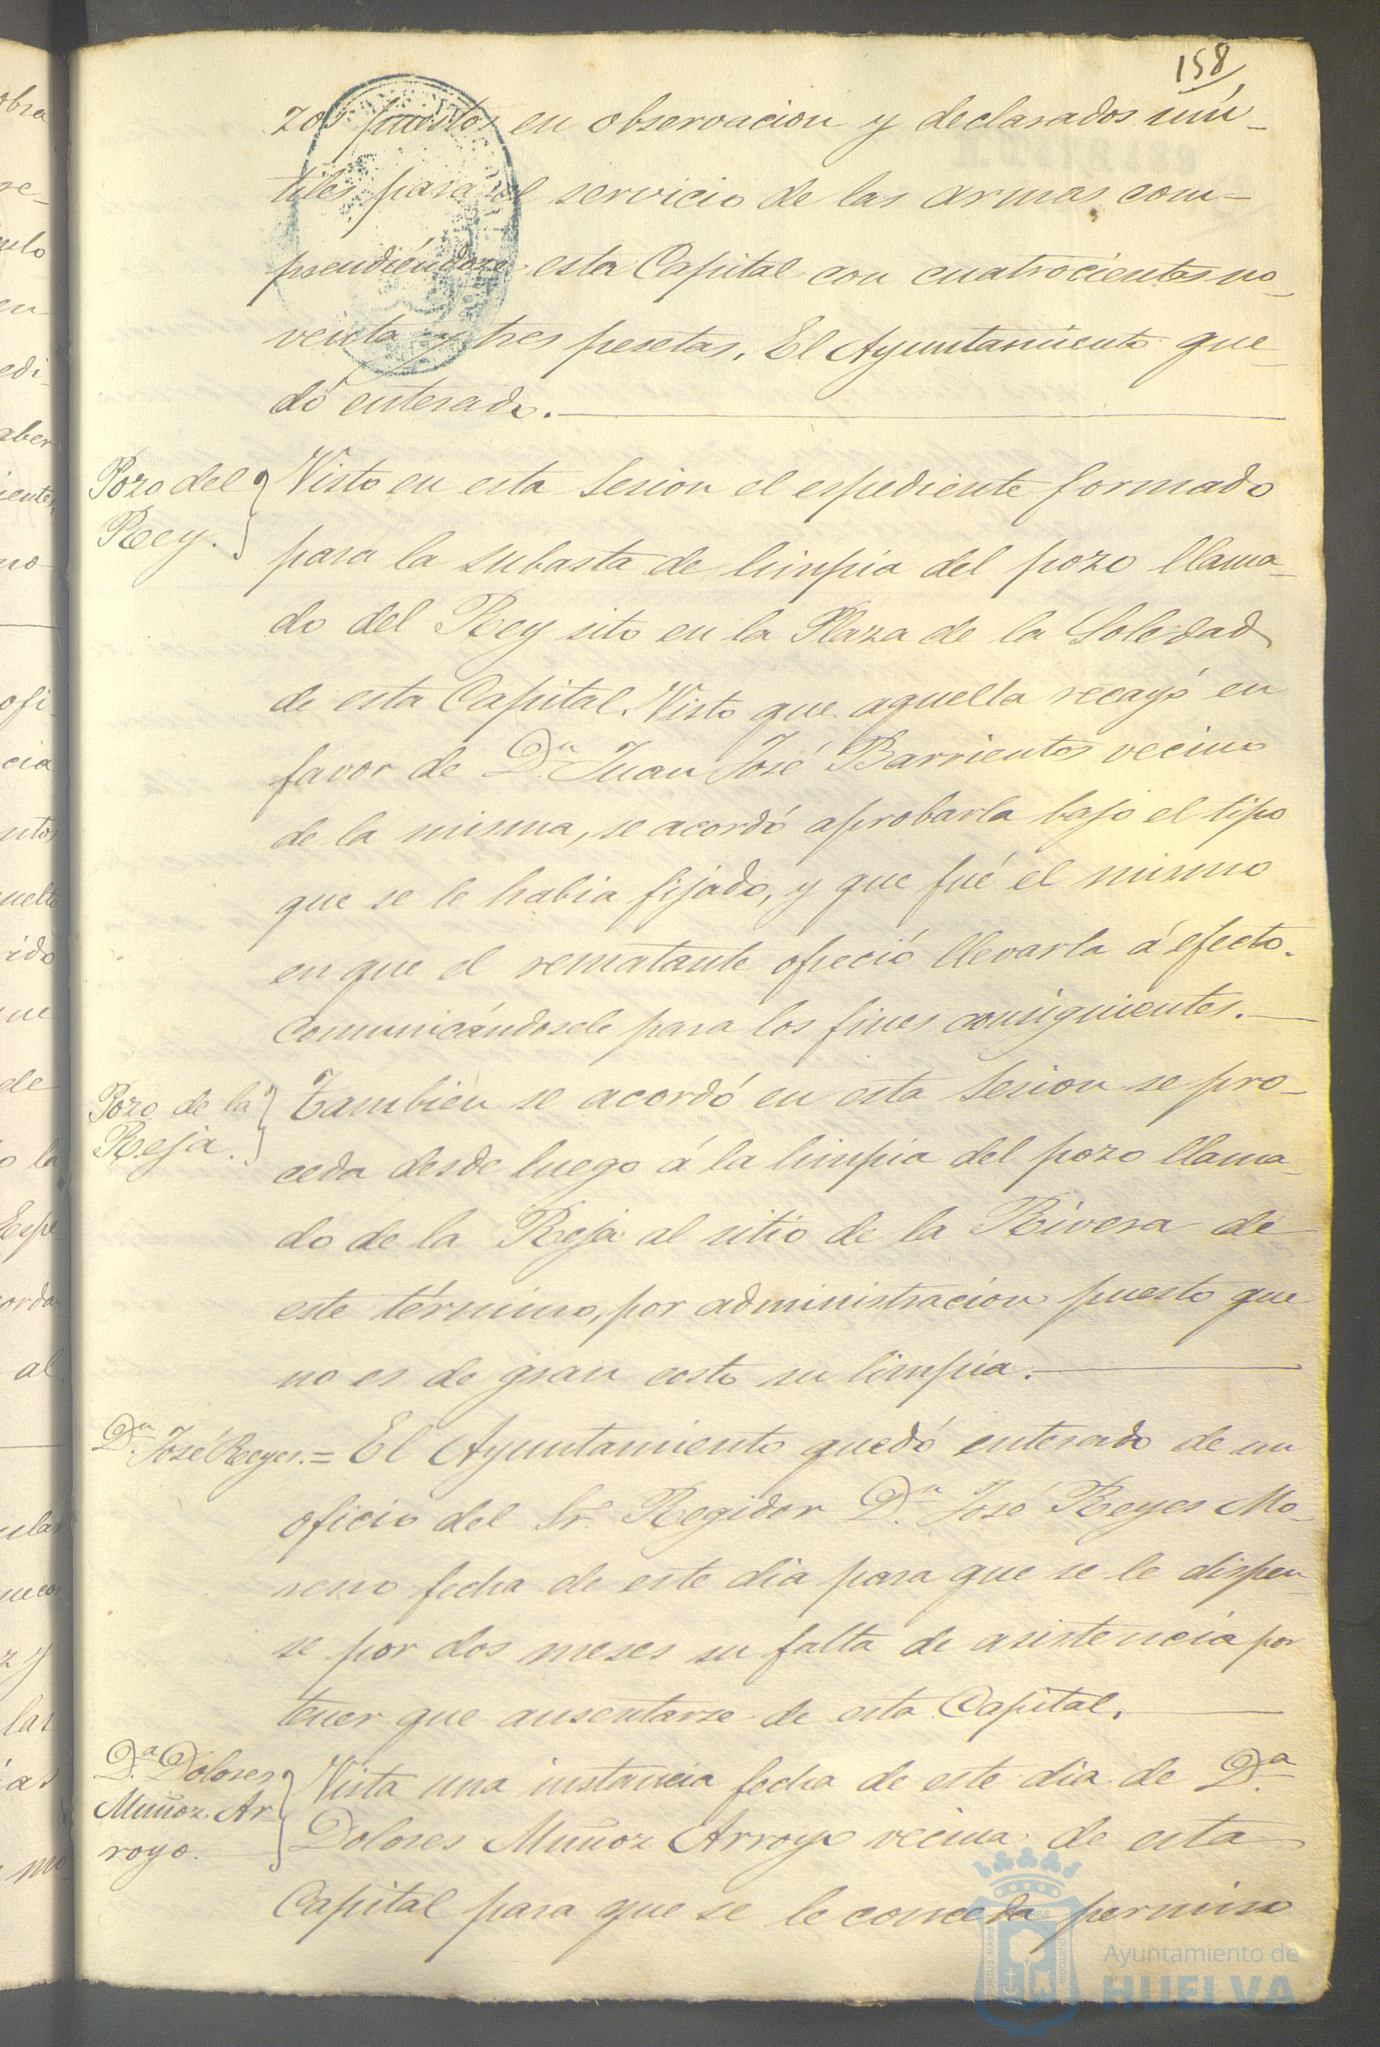 158
zos puestos en observacion y declarados inú-
tiles para el servicio de las armas com-
prendiéndose esta Capital con cuatrocientos no-
venta y tres pesetas. El Ayuntamiento que-
dó enterado.
Pozo del
Rey.
Visto en esta Sesion el espediente formado
para la subasta de limpia del pozo llama-
do del Rey sito en la Plaza de la Soledad
de esta Capital. Visto que aquella recayó en
favor de Dn. Juan José Barrientos vecino
de la misma, se acordó aprobarla bajo el tipo
que se le habia fijado, y que fué el mismo
en que el rematante ofreció llevarla á efecto.
Comunicándosele para los fines consiguientes.
Pozo de la
Reja.
Tambien se acordó en esta Sesion se pro-
ceda desde luego á la limpia del pozo llama-
do de la Reja al sitio de la Rivera de
este término, por administracion puesto que
no es de gran costo su limpia.
Dn. José Reyes. = El Ayuntamiento quedó enterado de un
oficio del Sr. Regidor Dn. José Reyes Mo-
reno fecha de este dia para que se le dispen-
se por dos meses su falta de asistencia por
tener que ausentarse de esta Capital.
Da. Dolores
Muñoz Ar-
royo.
Vista una instancia fecha de este dia de Da.
Dolores Muñoz Arroyo vecina de esta
Capital para que se le conceda permiso
Ayuntamiento de
HUELVA